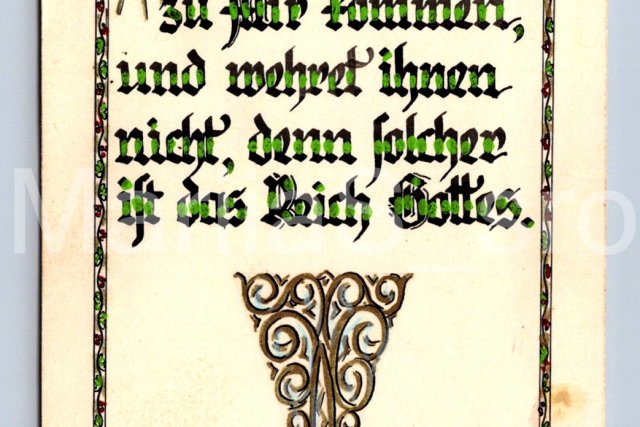 zu mir kommen,
und wehret ihnen
nicht, denn solcher
ist das Reich Gottes.